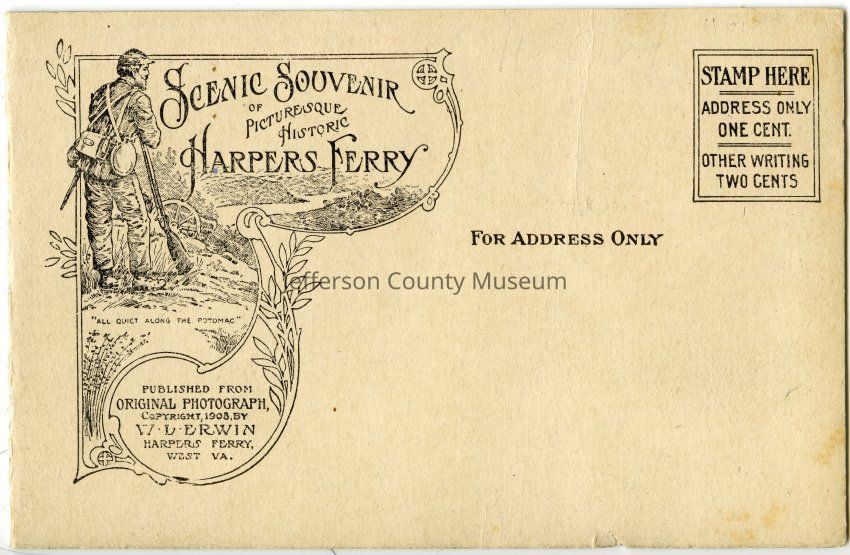 SCENIC SOUVENIR
OF
PICTURESQUE
HISTORIC
HARPERS FERRY
"ALL QUIET ALONG THE POTOMAC"
PUBLISHED FROM
ORIGINAL PHOTOGRAPH,
COPYRIGHT, 1903, BY
W·L·ERWIN
HARPERS FERRY,
WEST VA.
STAMP HERE
ADDRESS ONLY
ONE CENT.
OTHER WRITING
TWO CENTS
FOR ADDRESS ONLY
Jefferson County Museum